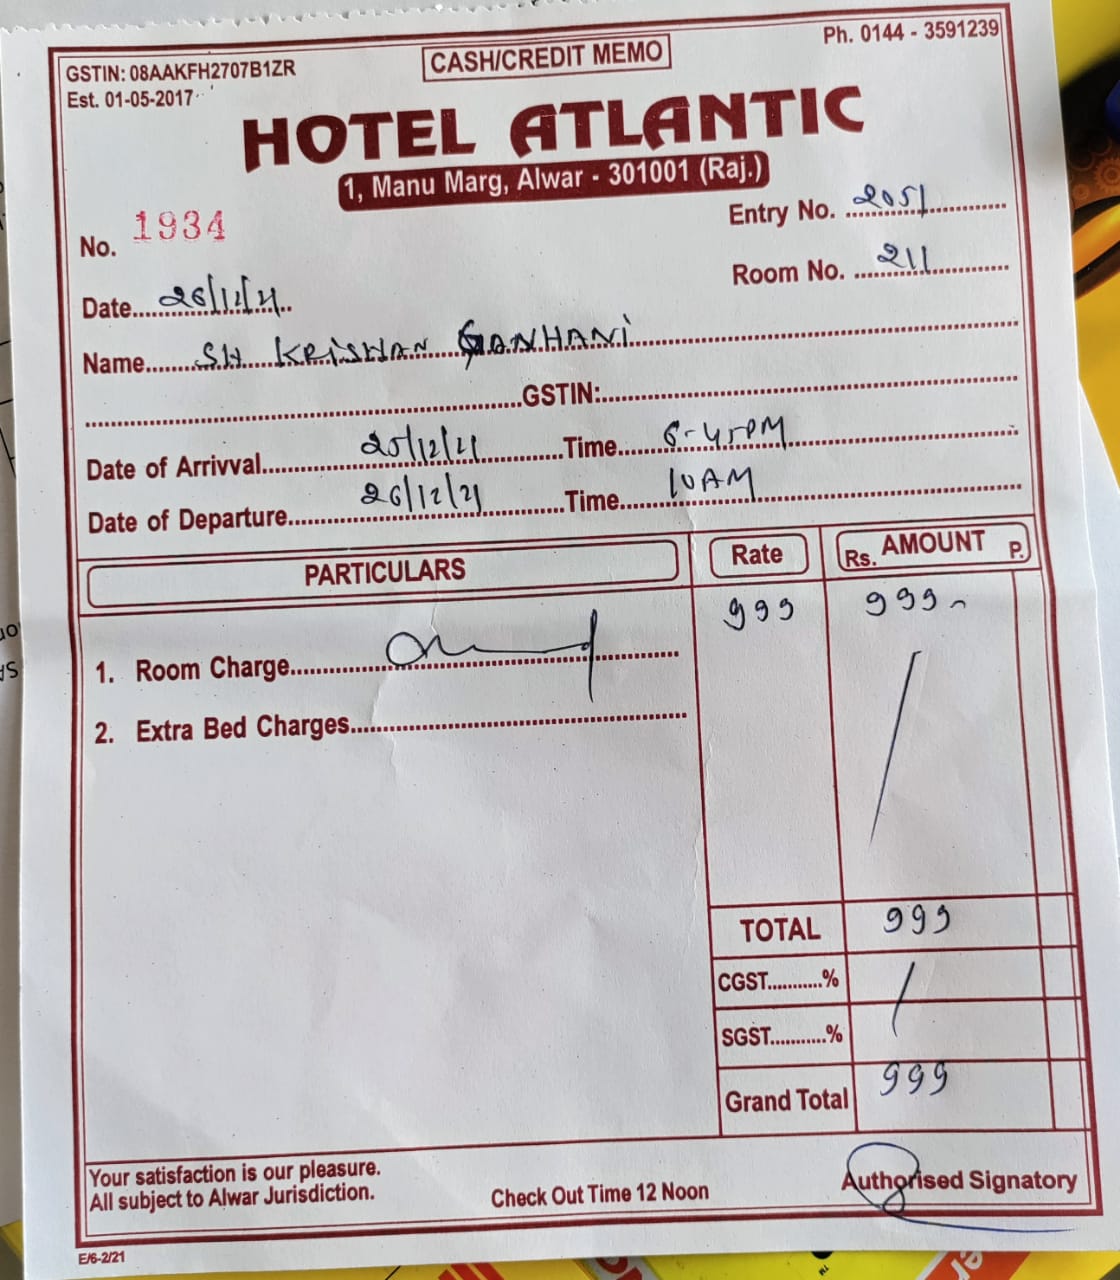 GSTIN: 08AAKFH2707B1ZR
CASH/CREDIT MEMO
Ph. 0144 - 3591239
Est. 01-05-2017
HOTEL ATLANTIC
1, Manu Marg, Alwar - 301001 (Raj.)
No. 1934
Entry No. 2051
Room No. 211
Date 26/12/21
Name SH KRISHAN
GSTIN:
Date of Arrivval 25/12/21 Time 6-45PM
Date of Departure 26/12/21 Time 10AM
PARTICULARS Rate Rs. AMOUNT P.
999 999
1. Room Charge
2. Extra Bed Charges
TOTAL 999
CGST...........%
SGST...........%
Grand Total 999
Your satisfaction is our pleasure.
All subject to Alwar Jurisdiction.
Check Out Time 12 Noon
Authorised Signatory
E/6-2/21